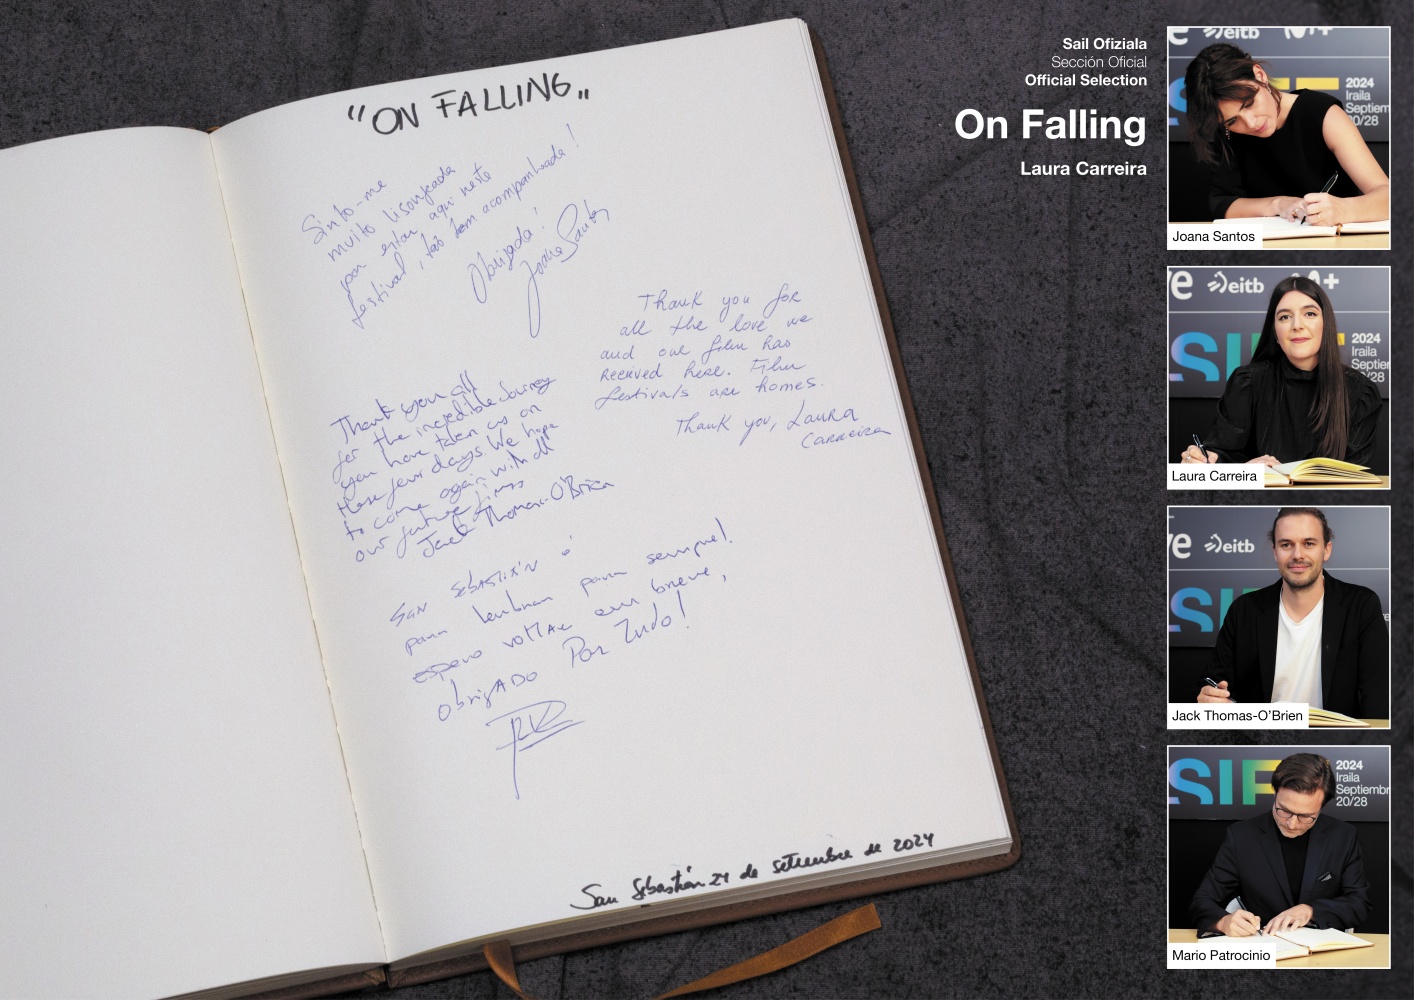 "ON FALLING"
Sinto-me
muito lisonjeada
por estar aqui neste
festival, tão bem acompanhada!
Obrigada!
Joana Santos
Thank you for
all the love we
and our film has
received here. Film
festivals are homes.
Thank you, Laura
Carreira
Thank you all
for the incredible journey
you have taken us on
these few days. We hope
to come again with all
our future films
Jack Thomas-O'Brien
San Sebastián é
para lembrar para sempre!
espero voltar em breve,
obrigado Por Tudo!
San Sebastián 24 de setiembre de 2024
Sail Ofiziala
Sección Oficial
Official Selection
On Falling
Laura Carreira
eitb
M+
2024
Iraila
Septiem
20/28
Joana Santos
ve
eitb
SI
2024
Iraila
Septie
/28
Laura Carreira
ve
eitb
SI
Jack Thomas-O'Brien
SIF
2024
Iraila
Septiembr
20/28
Mario Patrocinio